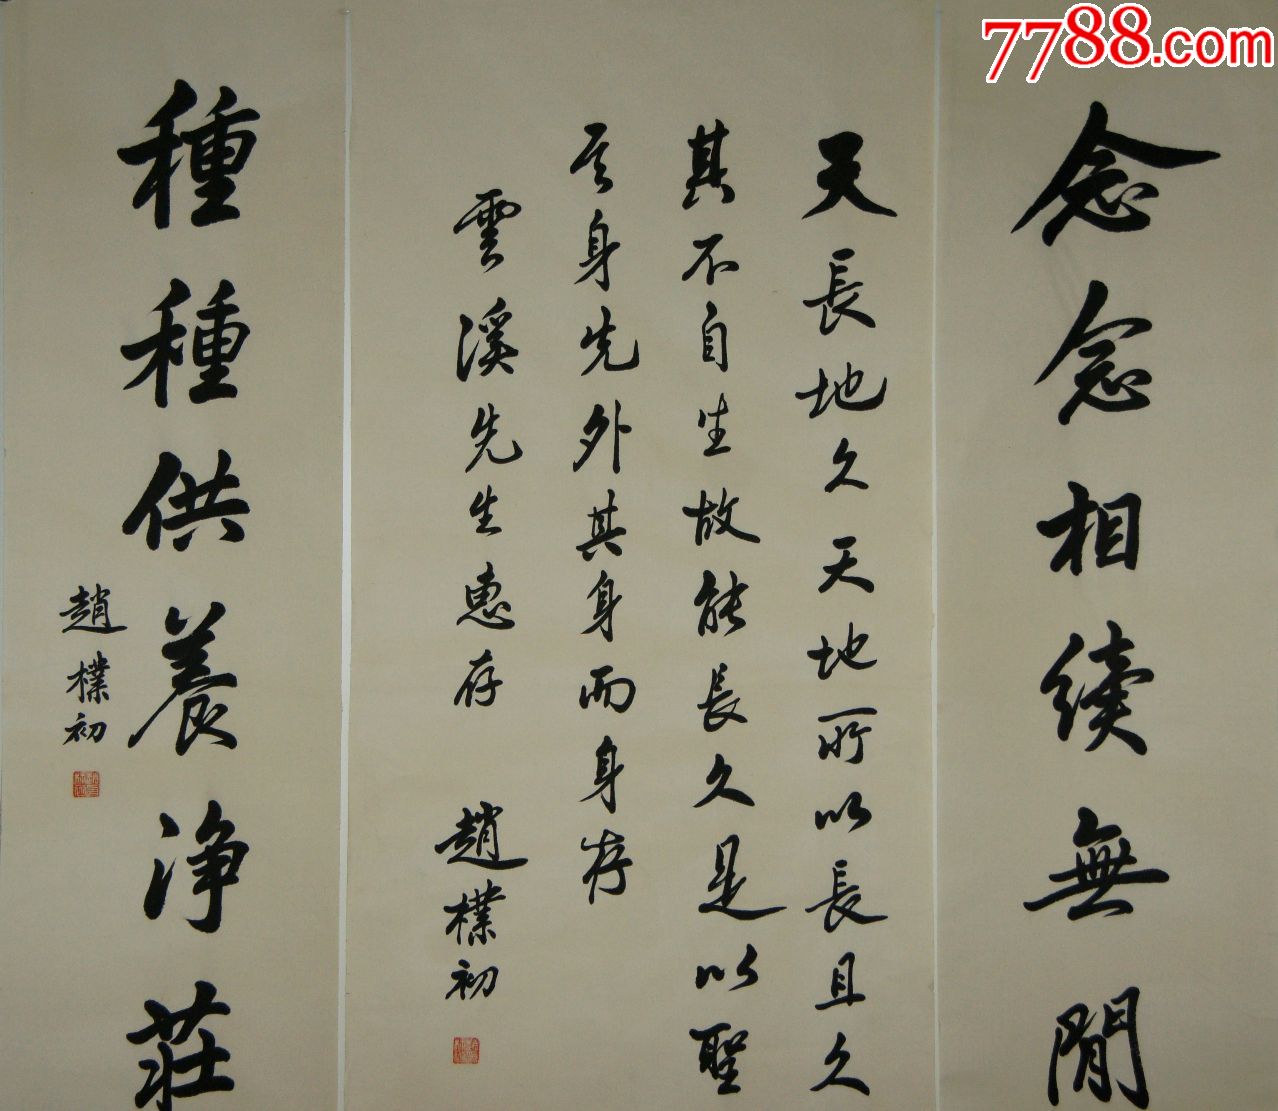 7788.com
念念相續無閒
天長地久天地所以長且久
其不自生故能長久是以聖
身先外其身而身存
雲溪先生惠存 趙樸初
種種供養淨莊
趙樸初